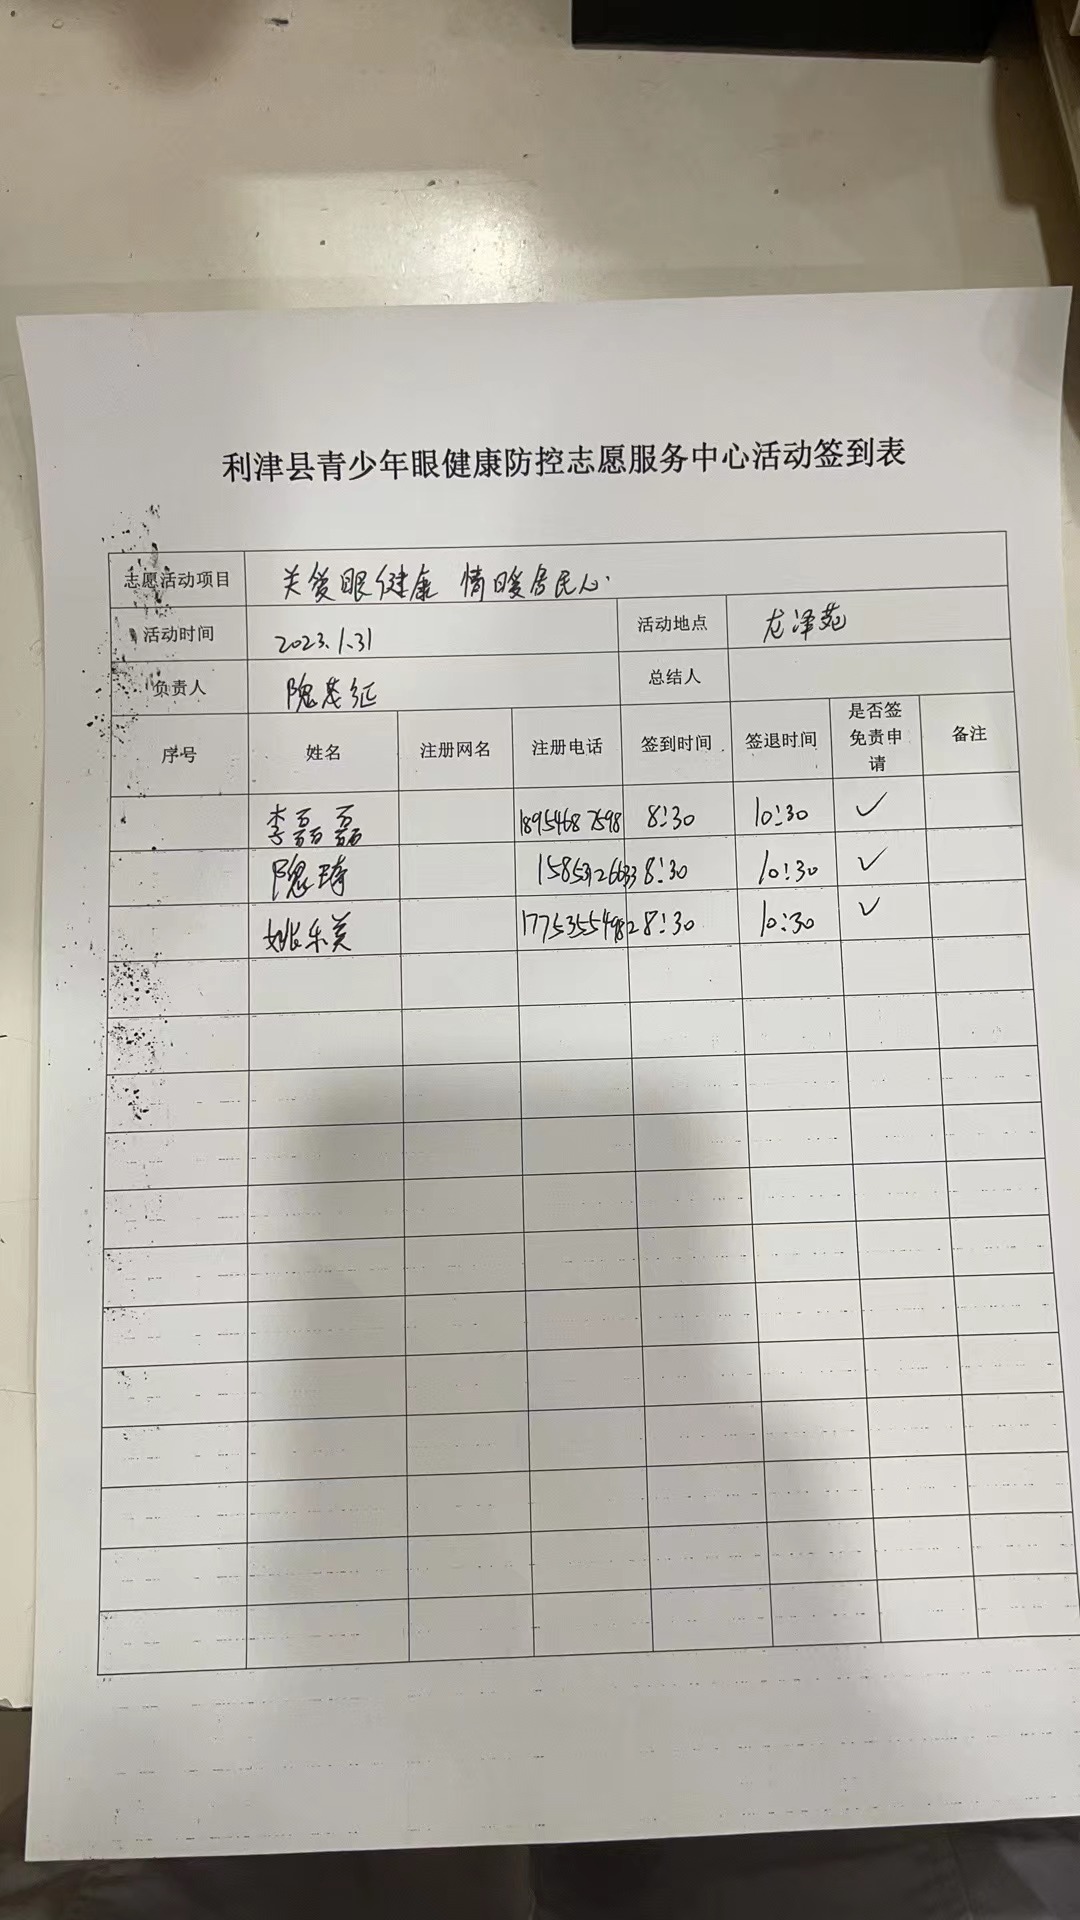 利津县青少年眼健康防控志愿服务中心活动签到表
志愿活动项目 关爱眼健康 情暖居民心
活动时间 2023.1.31 活动地点 龙泽苑
负责人 隗茂征 总结人
序号 姓名 注册网名 注册电话 签到时间 签退时间 是否签免责申请 备注
李磊磊 18954687598 8:30 10:30 ✓
隗琦 15853126633 8:30 10:30 ✓
姚乐美 17753554982 8:30 10:30 ✓